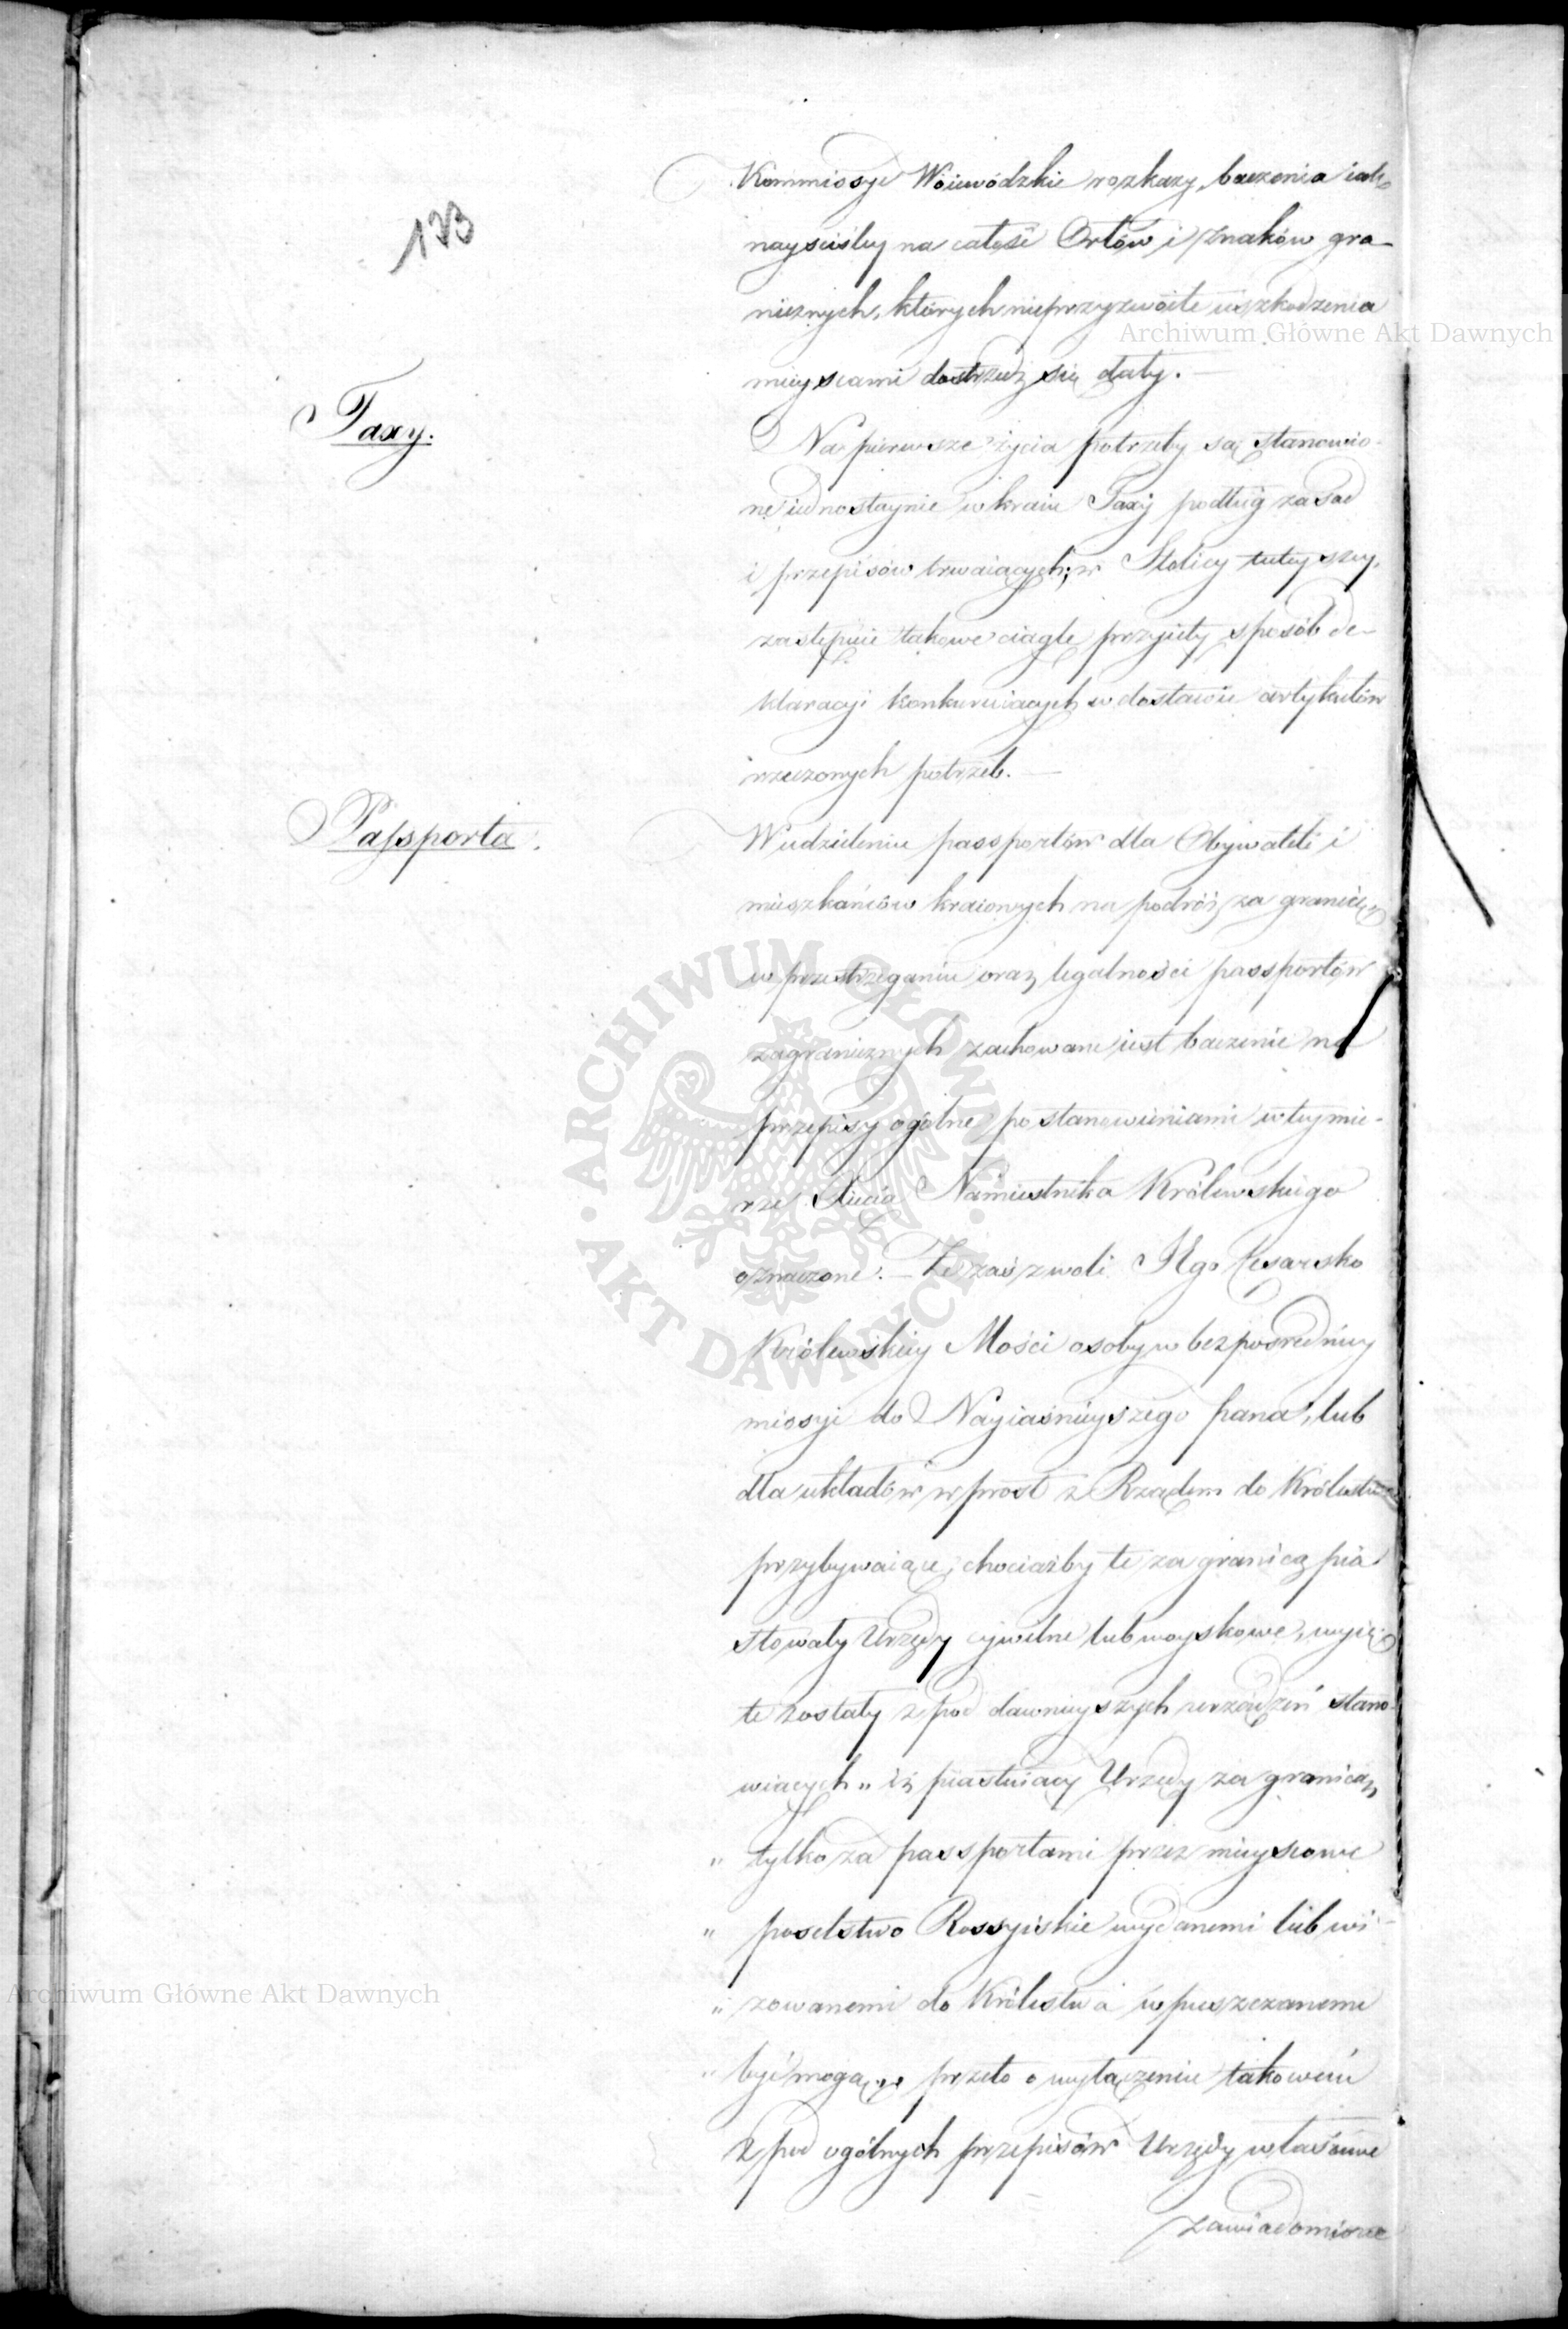 133
Kommissye Woiewódzkie rozkazy, baczenia iak
nayściśley na całość Orłów i znaków gra-
nicznych, których nieprzyzwoite uszkodzenia
mieyscami dostrzedz się dały. —
Taxy.
Na pierwsze życia potrzeby są stanowio-
ne iednostaynie w kraiu Taxy podług zasad
i przepisów trwaiących; w Stolicy tuteyszey,
zastępuie takowe ciągle przyięty sposób de-
klaracyi konkuruiących w dostawie artykułów
rzeczonych potrzeb. —
Passporta.
W udzieleniu passportów dla Obywateli i
mieszkańców kraiowych na podróż za granicę,
w przestrzeganiu oraz legalności passportów
zagranicznych zachowane iest baczenie na
przepisy ogólne postanowieniami w tey mie-
rze Xięcia Namiestnika Królewskiego
oznaczone. — Ze zaś z woli Jego Cesarsko
Królewskiey Mości osoby w bezpośredniey
missyi do Nayiaśnieyszego Pana, lub
dla układów wprost z Rządem do Królestwa
przybywaiące, chociażby te za granicą pia
stowały Urzędy cywilne lub woyskowe, wyię-
te zostały z pod dawnieyszych urządzeń stano-
wiących „ iż piastuiący Urzędy za granicą,
„ tylko za passportami przez mieyscowe
„ poselstwo Rossyiskie wydanemi lub wi-
„ zowanemi do Królestwa wpuszczanemi
„ być mogą „ przeto o wyłączeniu takowém
z pod ogólnych przepisów Urzędy właściwe
zawiadomione
Archiwum Główne Akt Dawnych
ARCHIWUM GŁÓWNE · AKT DAWNYCH ·
Archiwum Główne Akt Dawnych